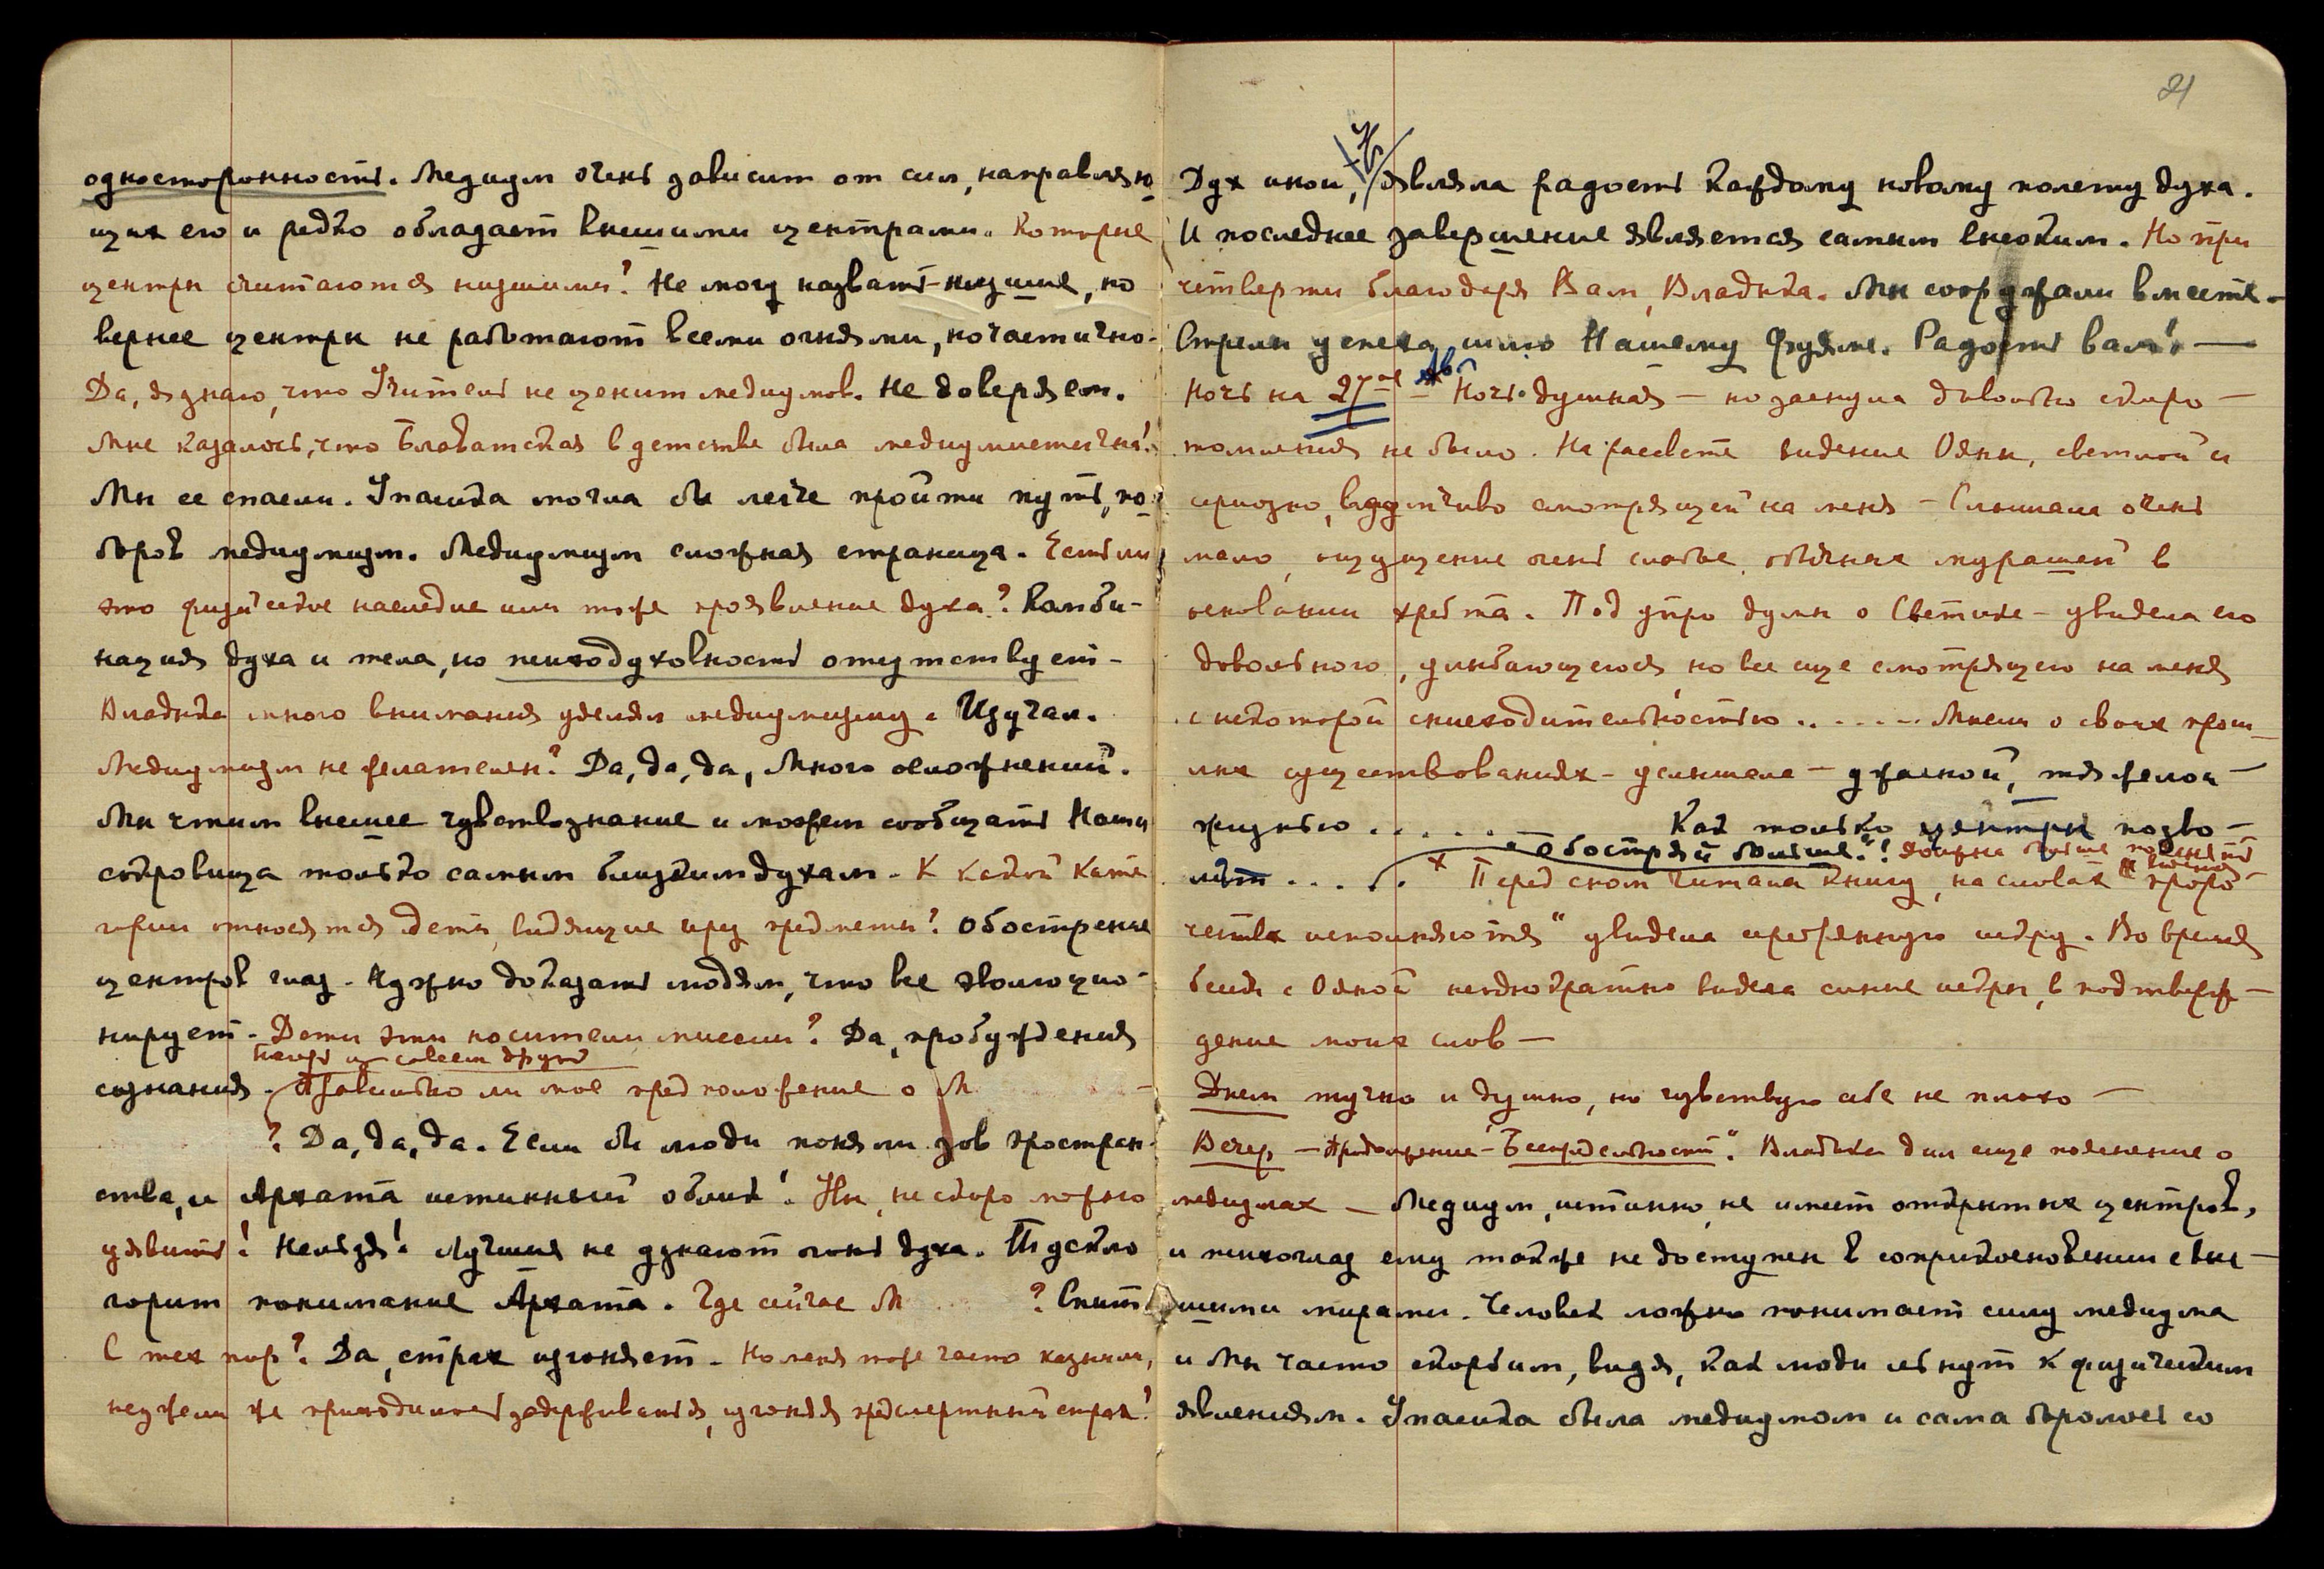 односторонность. Медиум очень зависит от сил, направляю
щих его и редко обладает высшими центрами. Которые
центры считаются низшими? Не могу назвать – низшие, но
вернее центры не работают всеми огнями, но частично.
Да, я знаю, что Учитель не ценит медиумов. Не доверяем.
Мне казалось, что Блаватская в детстве была медиумистична!
Мы ее спасли. Упасика могла бы легче пройти путь, по
боров медиумизм. Медиумизм сложная страница. Есть ли
это физическое наследие или тоже проявление духа? Комби-
нация духа и тела, но психодуховность отсутствует –
Владыка много внимания уделял медиумизму. Изучал.
Медиумизм не желателен? Да, да, да, Много осложнений.
Мы чтим высшее чувствознание и можем сообщать Наши
сокровища только самым близким духам. К какой кате
гории относятся дети, видящие чрез предметы? Обострение
центров глаз. Нужно доказать людям, что все эволюцио-
нирует. Дети эти носители миссии? Да, пробуждения
совсем другой
сознания. Правильно ли мое предположение о М –
? Да, да, да. Если бы люди поняли зов простран-
ства, и Архата истинный облик! Ны, не скоро можно
удивить! Нельзя! Лучшие не узнают огонь духа. Тускло
горит понимание Архата. Где сейчас М ? Спит
С тех пор? Да, страх изгоняет. Но меня тоже часто казнили,
неужели же приходилось задерживаться, изгоняя предсмертный страх!
21
Дух иной, Ур. / являла радость каждому новому полету духа.
И последнее завершение является самым высоким. Но при
четверти благодаря Вам, Владыка. Мы сооружали вместе –
Стрелы успеха шлю Нашему Фуяме. Радость вам! —
Ночь на 27ое Ав – Ночь душная – но заснула довольно скоро –
томления не было. На рассвете видение Ояны, светлой и
серьозно, вдумчиво смотрящей на меня – Слышала очень
мало, ощущение очень слабые, обычных мурашей в
основании хребта. Под утро думы о Светике – увидела его
довольного, улыбающегося но все еще смотрящего на меня
с некоторой снисходительностью . . . . . . Мысли о своих прош
лых существованиях – услышала – ужасной, тяжелой –
жизнью . . . . . – Как только центры позво –
"Обостряй больше"! Должна больше понять
лят . . . . . х Перед сном читала книгу, на словах "проро
чества исполняются" увидела серебряную искру. Во время
беседы с Ояной неоднократно видела синие искры, в подтверж –
дение моих слов –
Днем тучно и душно, но чувствую себе не плохо –
Вечер – Продолжение – "Беспредельности". Владыка дал еще пояснение о
медиумах – Медиум, истинно, не имеет открытых центров,
и психоглаз ему также не доступен в соприкосновении с выс –
шими мирами. Человек ложно понимает силу медиума
и Мы часто скорбим, видя, как люди льнут к физическим
явлениям. Упасика была медиумом и сама боролась со